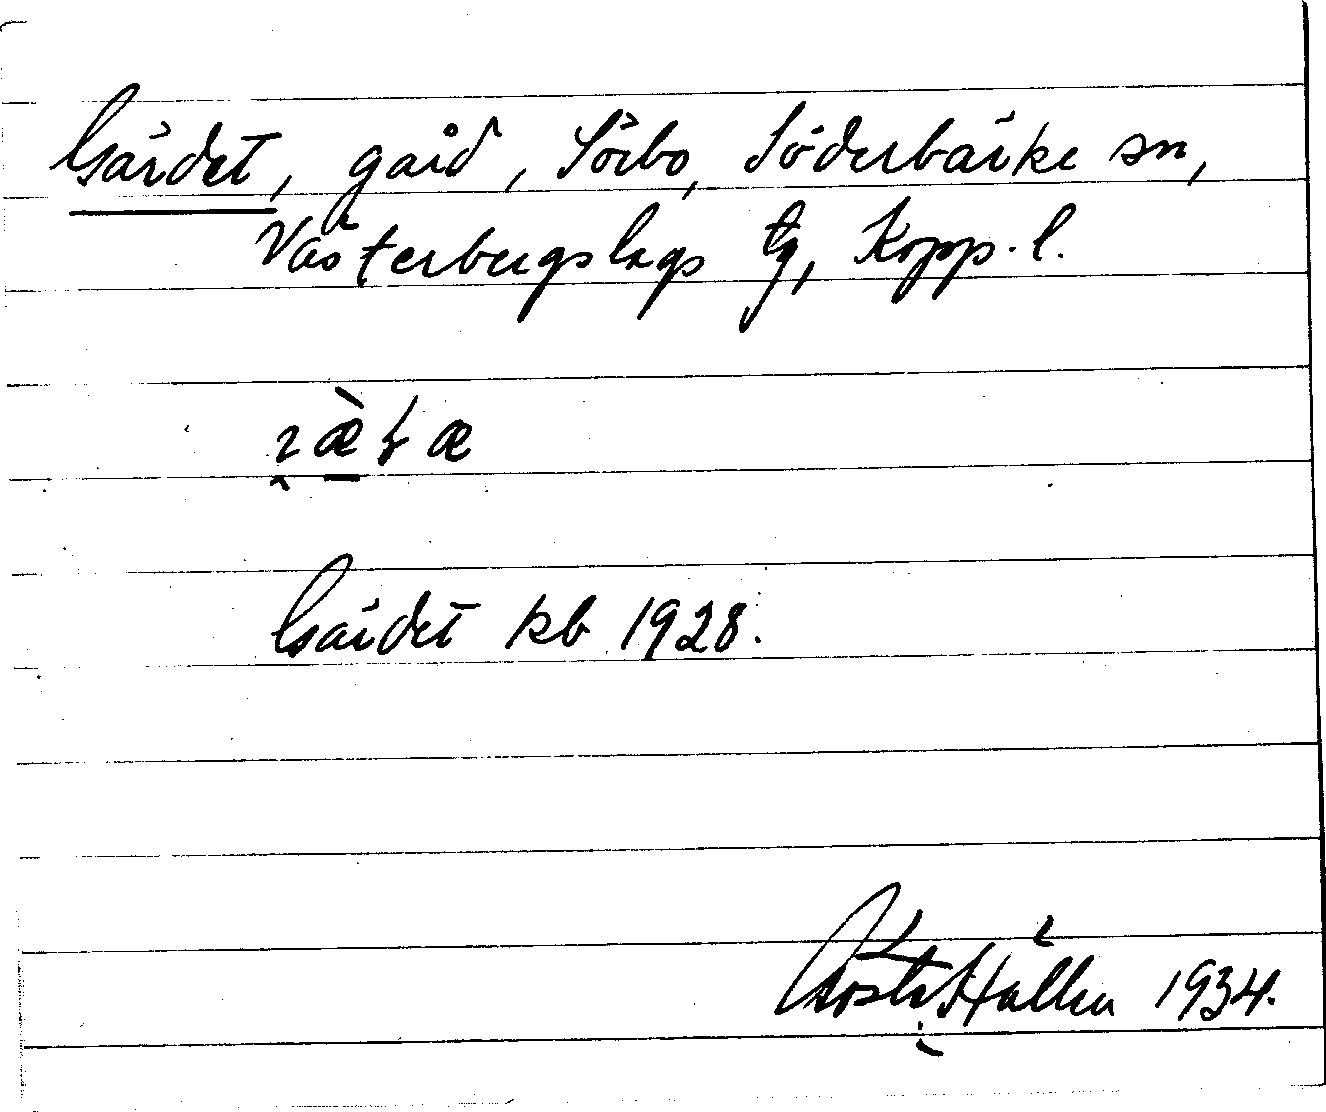 Gärdet, gård, Sörbo, Söderbärke sn,
Västerbergslags tg, Kopp. l.
Gärdet kb 1928.
Gösta Hallén 1934.